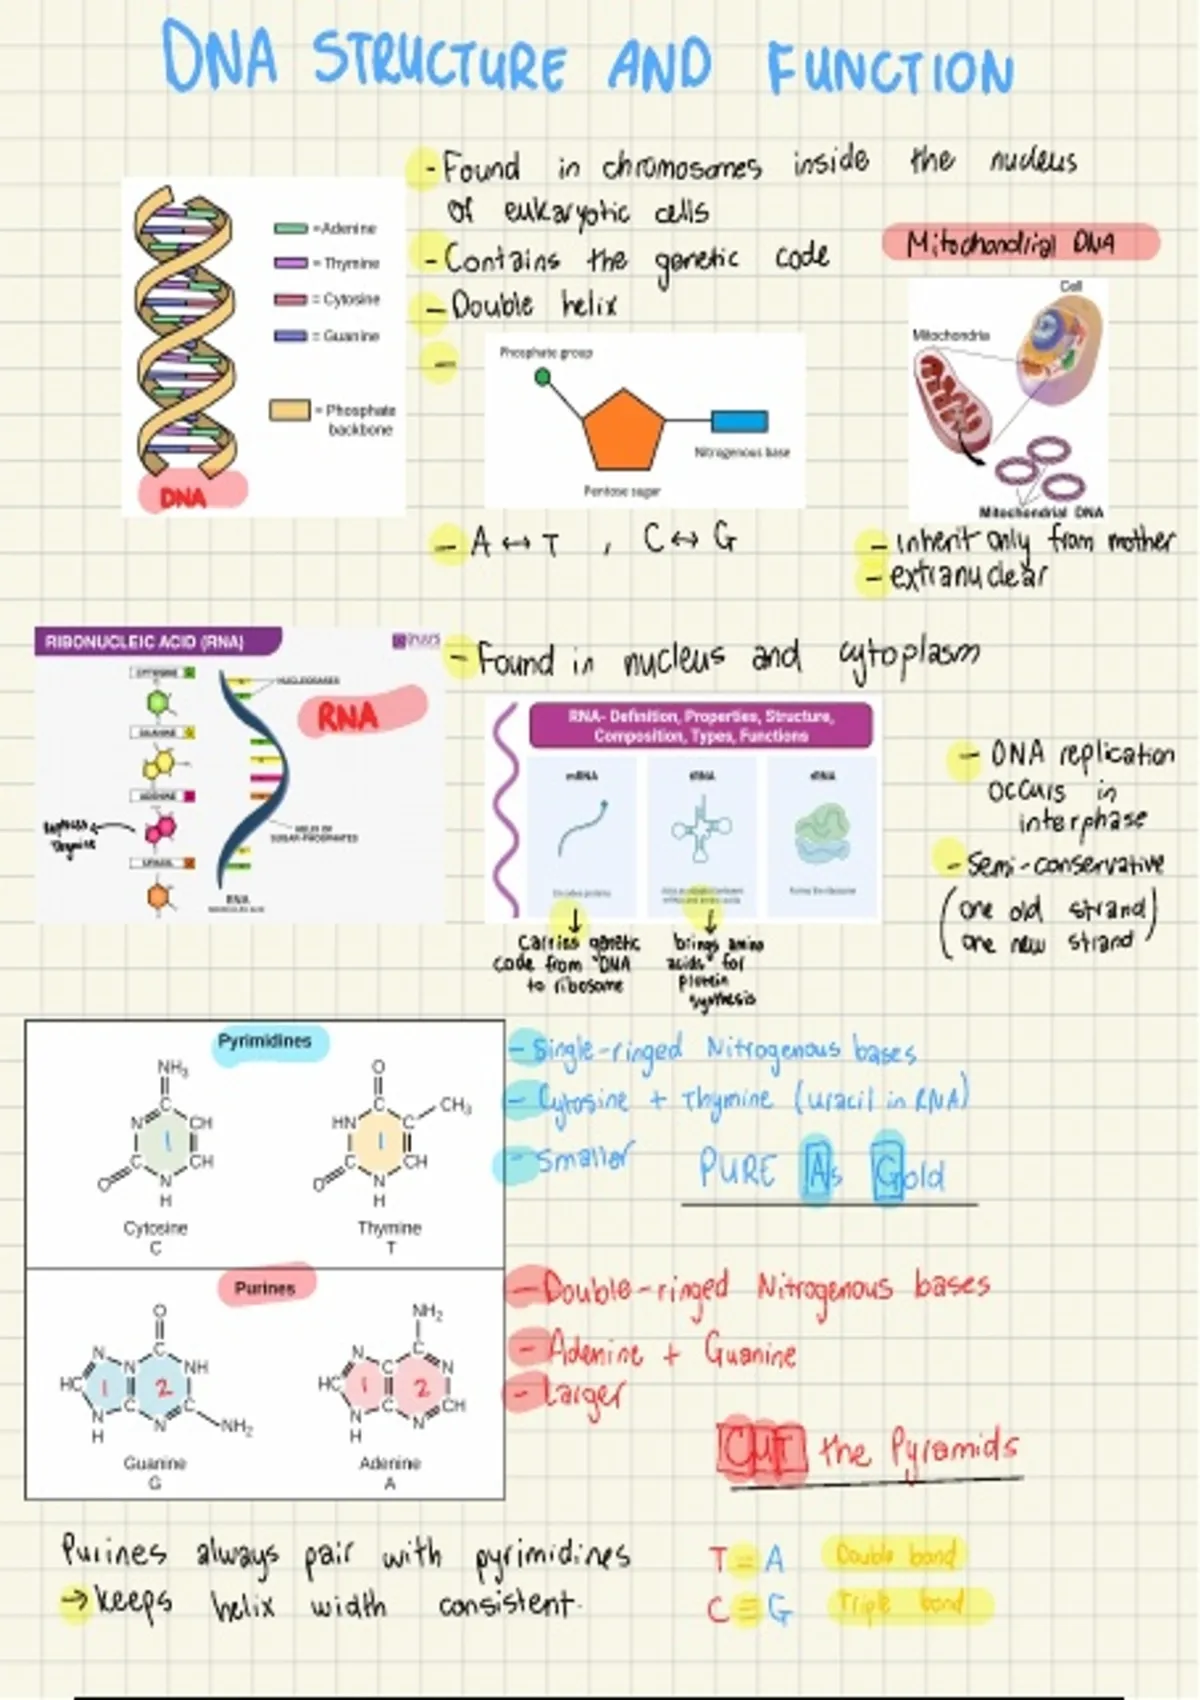 DNA STRUCTURE AND FUNCTION
- Found in chromosomes inside the nucleus
of eukaryotic cells
- Contains the genetic code
- Double helix
-
= Adenine
= Thymine
= Cytosine
= Guanine
= Phosphate
backbone
DNA
Phosphate group
Nitrogenous base
Pentose sugar
- A ↔ T , C ↔ G
Mitochondrial DNA
Cell
Mitochondria
Mitochondrial DNA
- inherit only from mother
- extranuclear
RIBONUCLEIC ACID (RNA)
CYTOSINE C
GUANINE G
ADENINE A
URACIL U
NUCLEOBASES
RNA
HELIX OF
SUGAR-PHOSPHATES
RNA
RIBONUCLEIC ACID
replaces
Thymine
- Found in nucleus and cytoplasm
RNA- Definition, Properties, Structure,
Composition, Types, Functions
mRNA
tRNA
rRNA
Encodes proteins
Forms the ribosome
Carries genetic
code from DNA
to ribosome
brings amino
acids for
protein
synthesis
- DNA replication
occurs in
interphase
- Semi-conservative
(one old strand)
(one new strand)
Pyrimidines
NH₃
C
N
CH
1
C
CH
O
N
H
Cytosine
C
O
C
CH₃
HN
C
1
C
CH
O
N
H
Thymine
T
- Single-ringed Nitrogenous bases
- Cytosine + Thymine (uracil in RNA)
- Smaller
PURE As Gold
Purines
O
N
N
C
NH
HC
1
2
N
C
C
H
N
NH₂
Guanine
G
NH₂
C
N
C
N
HC
1
2
N
C
CH
H
N
Adenine
A
- Double-ringed Nitrogenous bases
- Adenine + Guanine
- Larger
CUT the Pyramids
Purines always pair with pyrimidines
→ keeps helix width consistent.
T = A Double bond
C ≡ G Triple bond